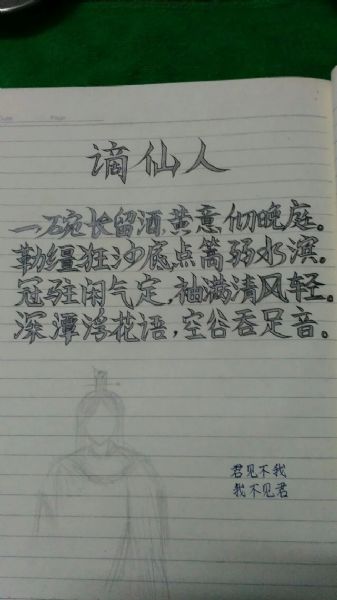 Page
谪仙人
一碗长留酒,黄意 晚庭。
勒缰狂沙底,点篙弱水滨。
冠驻闲气定,袖满清风轻。
深潭湾花语,空谷吞足音。
君见不我
我不见君